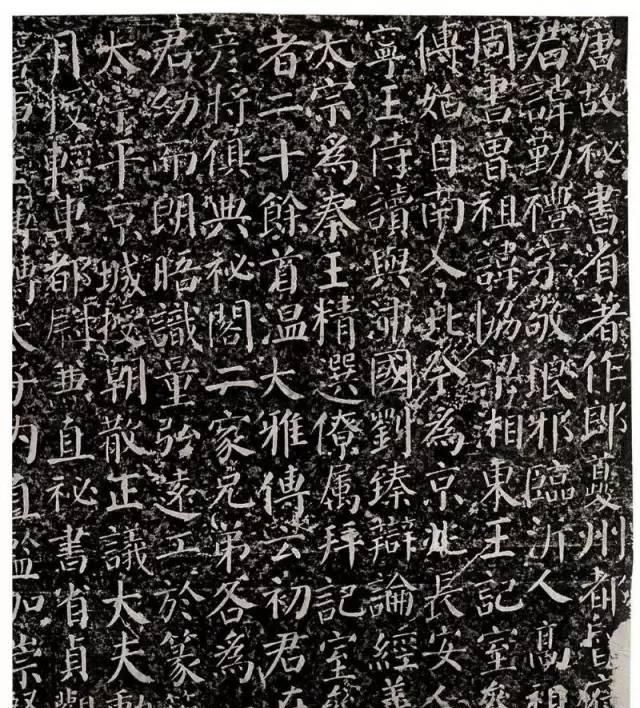 唐故祕書省著作郎夔州都督
君諱勤禮字敬琅邪臨沂人高祖
周書曾祖諱協梁湘東王記室參
傅始自南入北今為京兆長安人
寧王侍讀與沛國劉臻辯論經義
太宗為秦王精選僚属拜記室
者二十餘首温大雅傳云初君在
彥將俱典祕閣二家兄弟各為
君幼而朗晤識量弘遠工於篆
太宗平京城授朝散正議大夫勳
月授輕車都尉兼直祕書省貞觀
轉太子内直監加崇賢